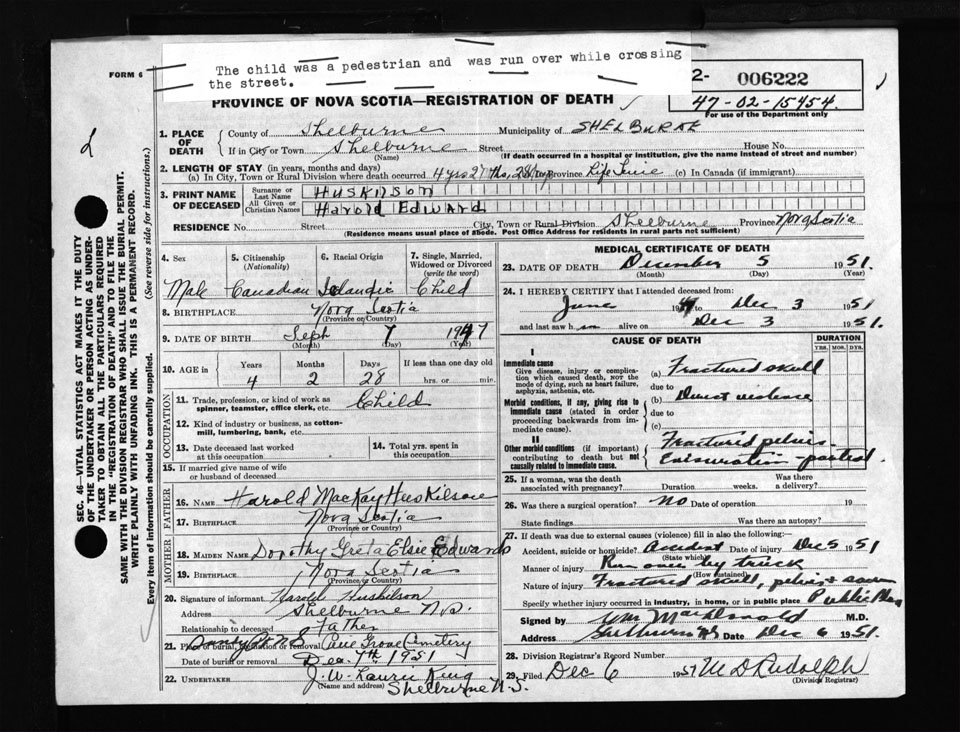 FORM 6
The child was a pedestrian and was run over while crossing
the street.
2- 006222
47-02-15454.
For use of the Department only
PROVINCE OF NOVA SCOTIA—REGISTRATION OF DEATH
1. PLACE OF DEATH
County of Shelburne Municipality of SHELBURNE
If in City or Town Shelburne Street House No.
(Name) (If death occurred in a hospital or institution, give the name instead of street and number)
2. LENGTH OF STAY (in years, months and days)
(a) In City, Town or Rural Division where death occurred 4 yrs 2 mths, 28 Province Life Time (c) In Canada (if immigrant)
3. PRINT NAME OF DECEASED
Surname or Last Name HUSKILSON
All Given or Christian Names Harold Edward
RESIDENCE No. Street City, Town or Rural Division Shelburne Province Nova Scotia
(Residence means usual place of abode. Post Office Address for residents in rural parts not sufficient)
4. Sex
5. Citizenship (Nationality)
6. Racial Origin
7. Single, Married, Widowed or Divorced (write the word)
Male Canadian Child
8. BIRTHPLACE Nova Scotia
(Province or Country)
9. DATE OF BIRTH Sept 7 1947
(Month) (Day) (Year)
10. AGE in Years Months Days If less than one day old
4 2 28 hrs. or min.
OCCUPATION
11. Trade, profession, or kind of work as spinner, teamster, office clerk, etc. Child
12. Kind of industry or business, as cotton-mill, lumbering, bank, etc.
13. Date deceased last worked at this occupation
14. Total yrs. spent in this occupation.
15. If married give name of wife or husband of deceased
FATHER
16. NAME Harold MacKay Huskilson
17. BIRTHPLACE Nova Scotia
(Province or Country)
MOTHER
18. MAIDEN NAME Dorothy Greta Elsie Edwards
19. BIRTHPLACE Nova Scotia
(Province or Country)
20. Signature of informant Harold Huskilson
Address Shelburne N.S.
Relationship to deceased Father
21. Place of burial, cremation or removal Pine Grove Cemetery
Date of burial or removal Dec. 7th 1951
22. UNDERTAKER J. W. Laurie King
(Name and address) Shelburne N.S.
MEDICAL CERTIFICATE OF DEATH
23. DATE OF DEATH December 5 1951.
(Month) (Day) (Year)
24. I HEREBY CERTIFY that I attended deceased from:
June 19 to Dec 3 1951
and last saw him alive on Dec 3 1951.
CAUSE OF DEATH
DURATION
YRS. MOS. DYS.
I
Immediate cause
Give disease, injury or complication which caused death, NOT the mode of dying, such as heart failure, asphyxia, asthenia, etc.
(a) Fractured skull
due to
Morbid conditions, if any, giving rise to immediate cause (stated in order proceeding backwards from immediate cause).
(b) Direct violence
due to
(c)
II
Other morbid conditions (if important) contributing to death but not causally related to immediate cause.
Fractured pelvis
25. If a woman, was the death associated with pregnancy? Duration weeks. Was there a delivery?
26. Was there a surgical operation? No Date of operation 19
State findings Was there an autopsy?
27. If death was due to external causes (violence) fill in also the following:—
Accident, suicide or homicide? Accident Date of injury Dec 5 1951
(State which)
Manner of injury Run over by truck
(How sustained)
Nature of injury Fractured skull, pelvis +
Specify whether injury occurred in industry, in home, or in public place Public Place
Signed by Wm MacDonald M.D.
Address Shelburne N.S. Date Dec 6 1951.
28. Division Registrar's Record Number
29. Filed Dec 6 1951 M D Rudolph
(Division Registrar)
SEC. 46—VITAL STATISTICS ACT MAKES IT THE DUTY
OF THE UNDERTAKER OR PERSON ACTING AS UNDER-
TAKER TO OBTAIN ALL THE PARTICULARS REQUIRED
IN THE "REGISTRATION OF DEATH" AND TO FILE THE
SAME WITH THE DIVISION REGISTRAR WHO SHALL ISSUE THE BURIAL PERMIT.
WRITE PLAINLY WITH UNFADING INK. THIS IS A PERMANENT RECORD.
Every item of information should be carefully supplied. (See reverse side for instructions.)